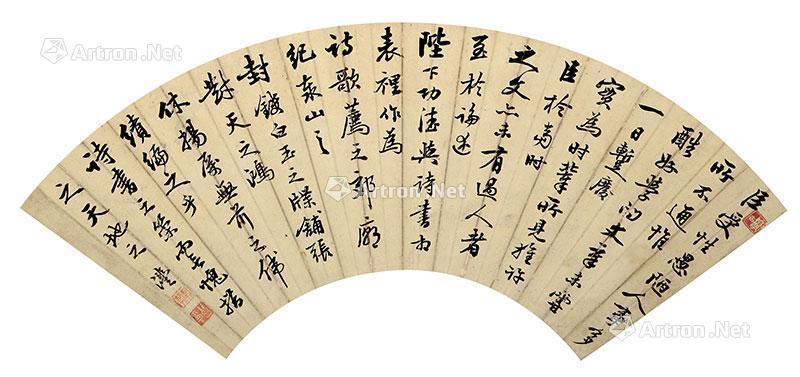 臣
受性愚陋人事多
所不通惟
酷好學問文章未嘗
一日暫廢
實為時輩所見推許
臣於當時
之文亦未有過人者
至於論述
陛下功德與詩書相
表裡作為
詩歌薦之郊廟
紀泰山之
封鏤白玉之牒鋪張
對天之鴻
休揚厲無前之偉
績編之乎
詩書之策而愧措
之天地之
Artron.Net
Artron.Net
Artron.Net
Artron.Net